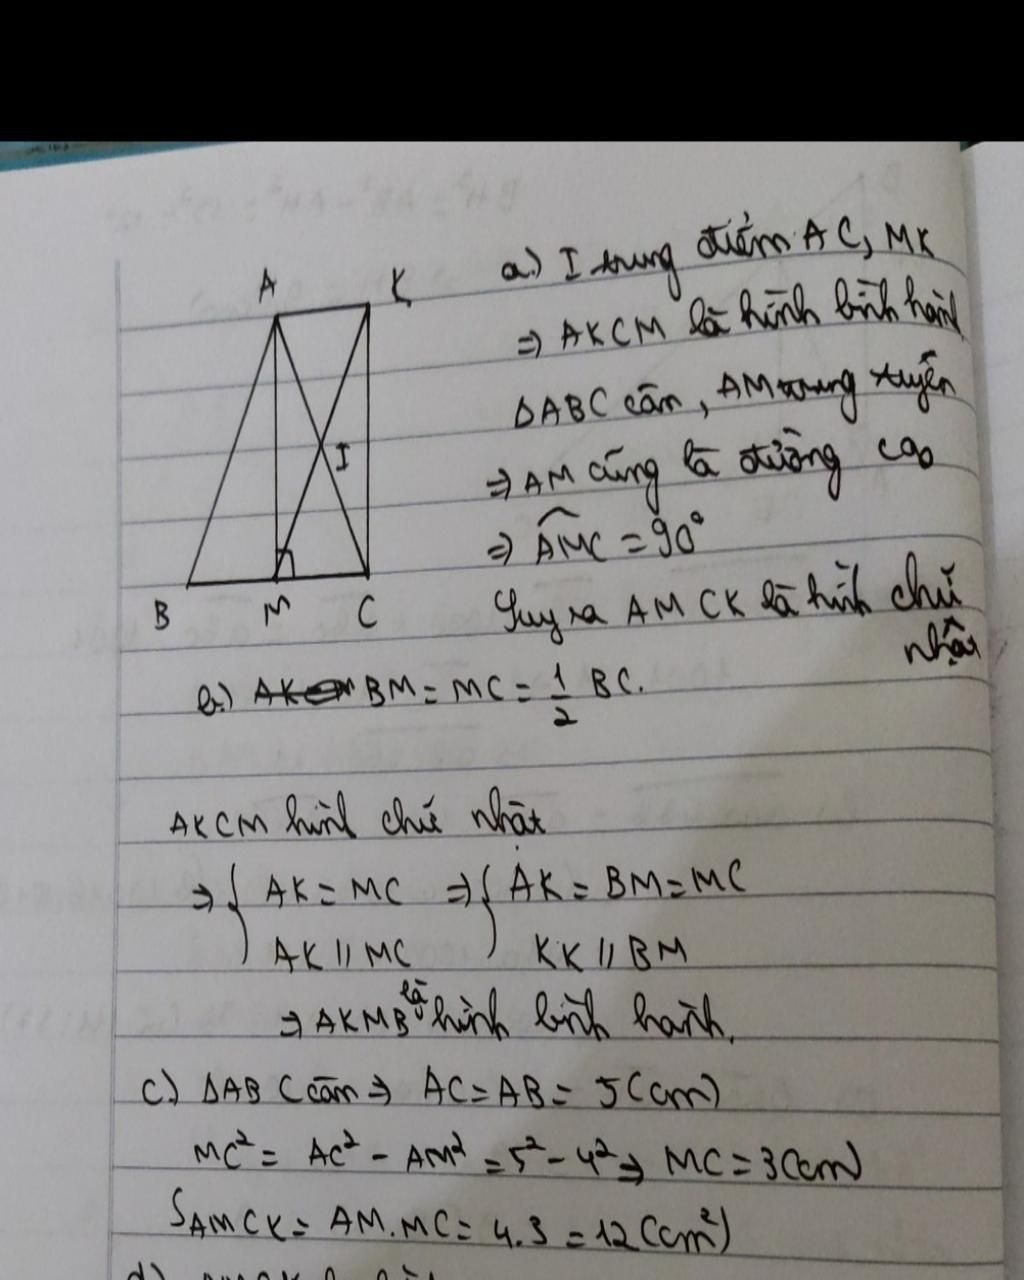 A K
I
B M C
a.) I trung điểm AC, MK
⇒ AKCM là hình bình hành
ΔABC cân, AM trung tuyến
⇒ AM cũng là đường cao
⇒ AMC = 90°
Suy ra AMCK là hình chữ
nhật
b.) BM = MC = 1/2 BC.
AKCM hình chữ nhật
⇒ { AK = MC ⇒ { AK = BM = MC
AK // MC KK // BM
⇒ AKMB là hình bình hành.
c.) ΔABC cân ⇒ AC = AB = 5 (cm)
MC² = AC² - AM² = 5² - 4² ⇒ MC = 3 (cm)
SAMCK = AM.MC = 4.3 = 12 (cm²)
d)